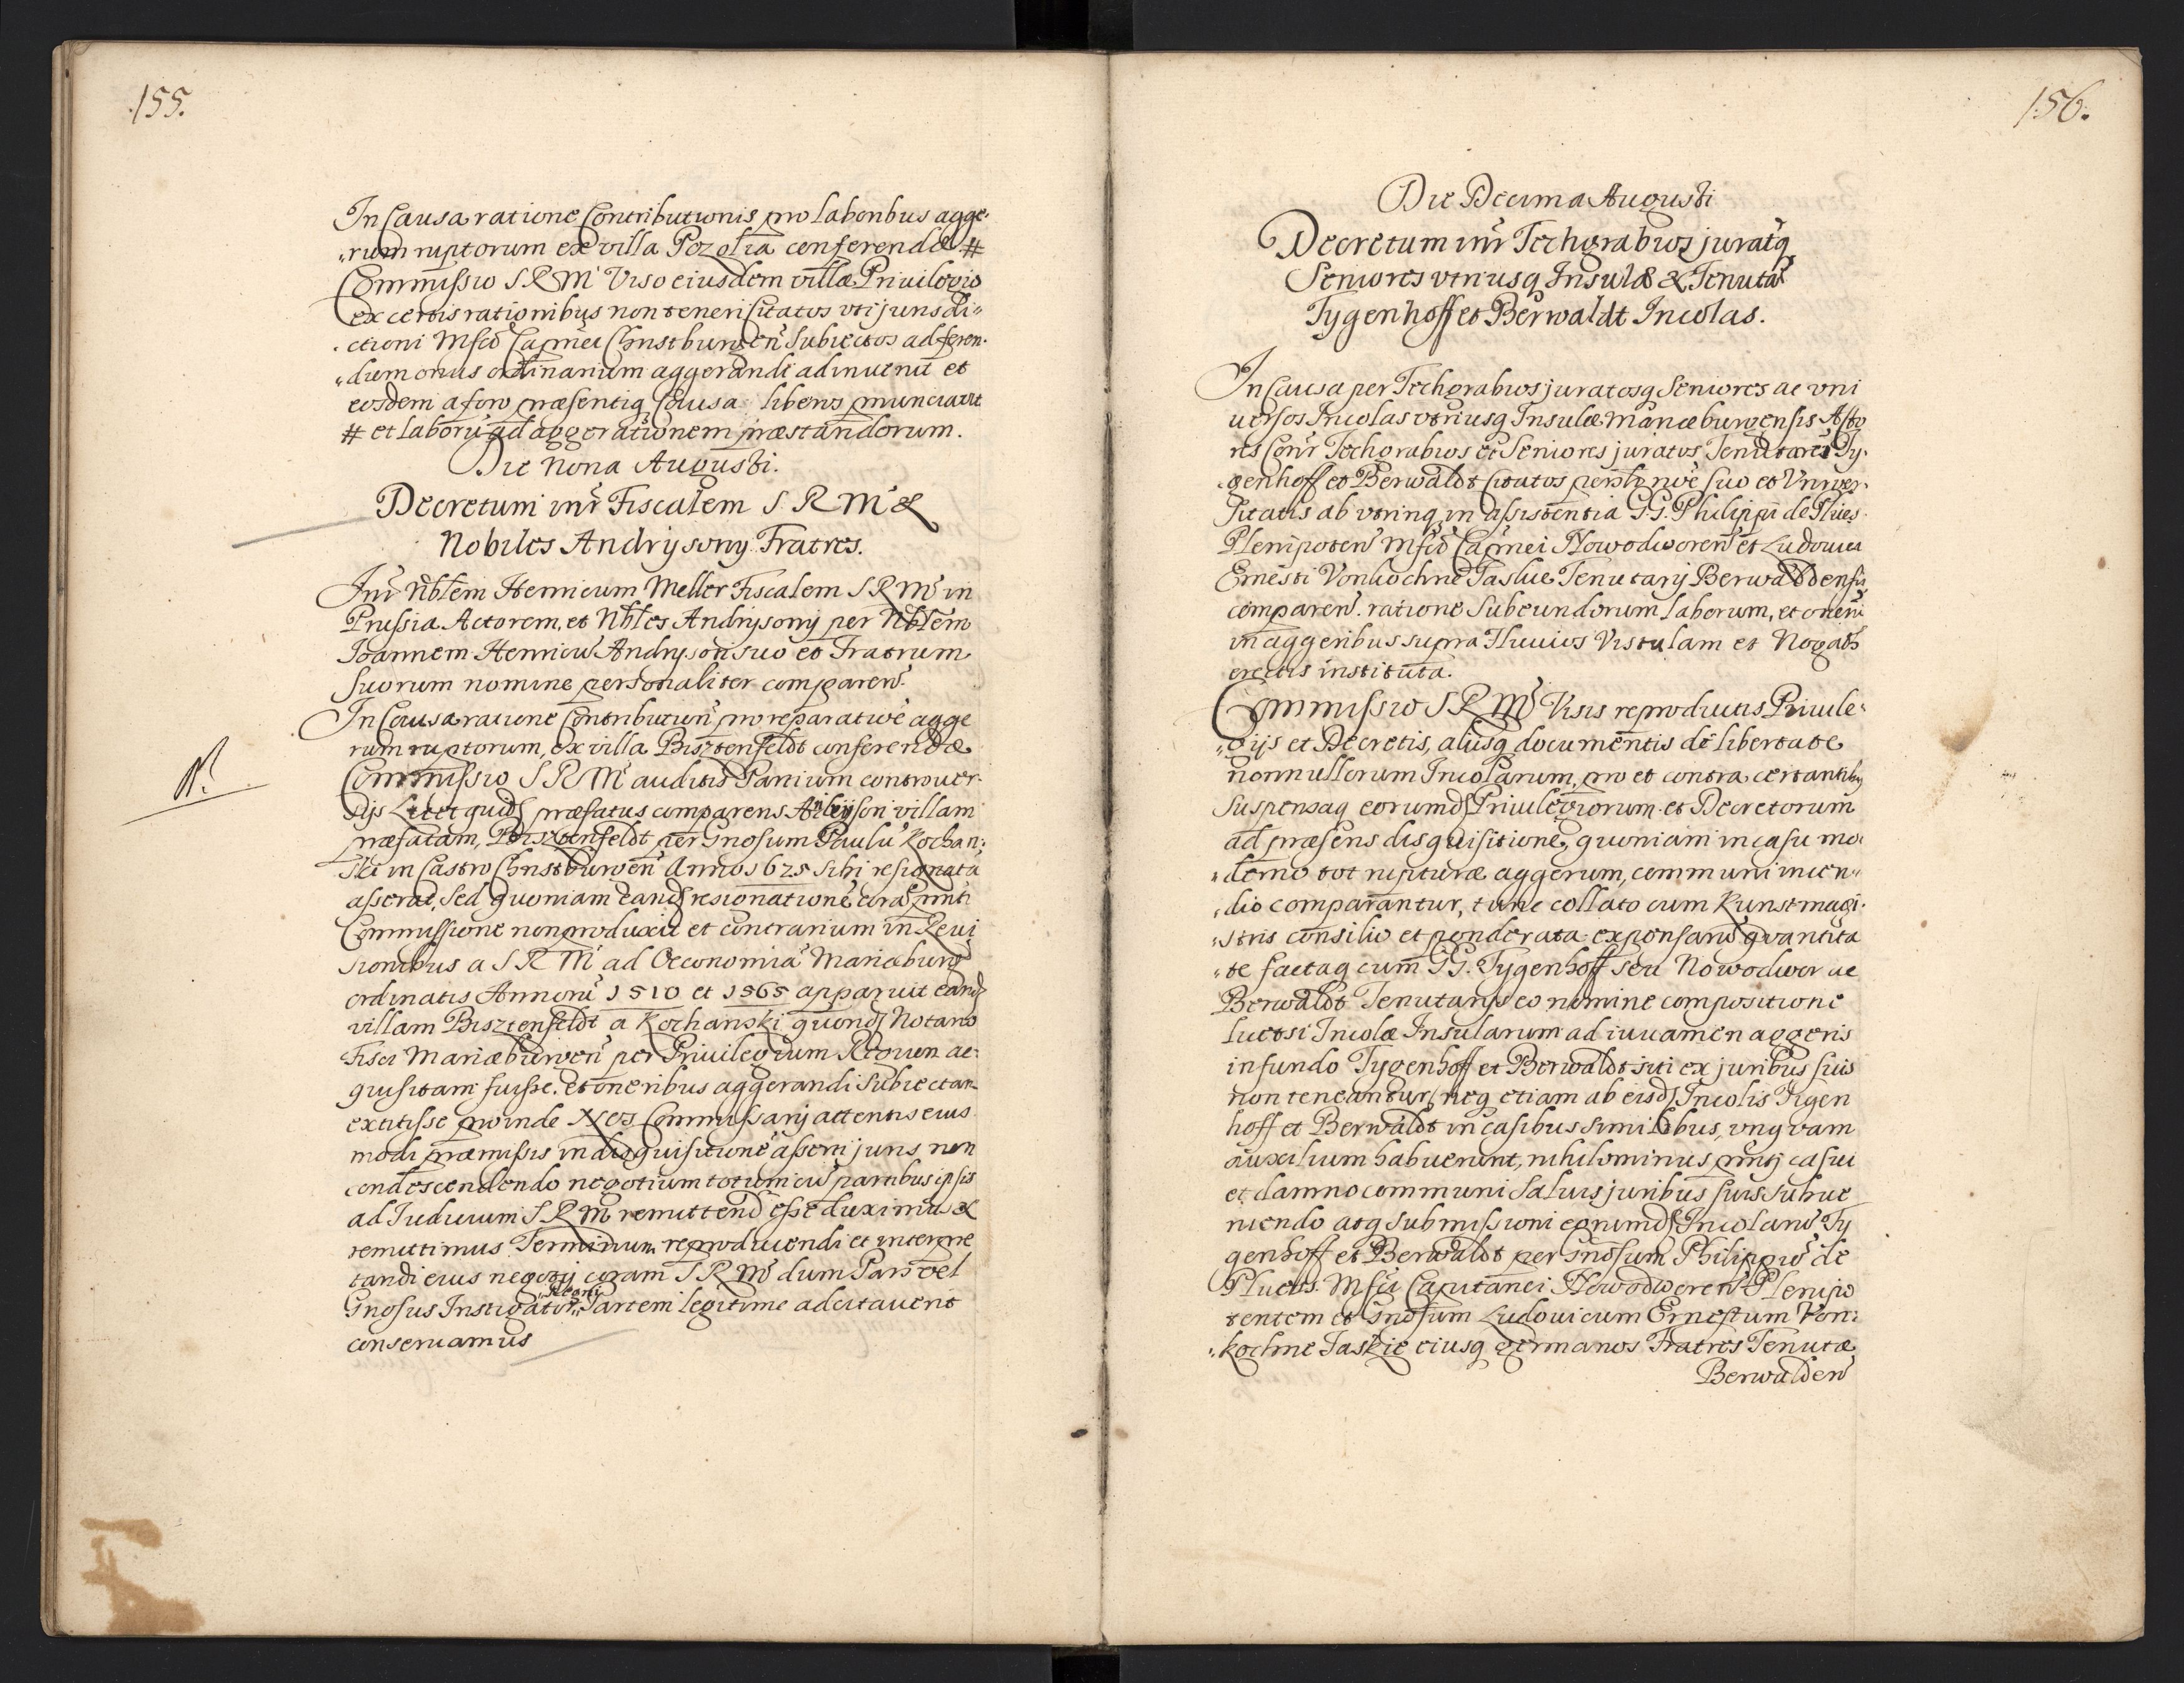 155.
In Causa ratione Contributionis pro laboribus agge-
rum ruptorum ex villa Pozolia conferendæ #
Commissio S R M Viso eiusdem villæ Priuilegio
ex certis rationibus non teneri Citatos vti jurisdi-
ctioni Mfci Capnei Christburgen Subiectos ad feren-
dum onus ordinarium aggerandi adinuenit et
eosdem a foro præsentiq Causa liberos pronunciauit
# et laborū ad aggerationem præstandorum.
Die Nona Augusti.
Decretum intr Fiscalem S R M &
Nobiles Andrysony Fratres.
Intr Nblem Henricum Meller Fiscalem S R M in
Prussia Actorem, et Nbles Andrysony per Nblem
Joannem Henricū Andryson suo et Fratrum
Suorum nomine personaliter comparen.
In Causa ratione Contribution pro reparatioe agge
rum ruptorum, ex villa Bisztenfeldt conferendæ
Commissio S R M auditis Partium controuer-
sijs Licet quid præfatus comparens Andryson villam
præfatam, Bisztenfeldt per Gnosum Paulū Kochan:
ski in Castro Christburgen Anno 1625 sibi resignatā
asserat, Sed quoniam eand resignationē corā pnti
Commissione non produxit et contrarium in Reui
sionibus a S R M ad Oeconomiā Mariæburg
ordinatis Annorū 1510 et 1565 apparuit eand
villam Bisztenfeldt a Kochanski quond Notario
Fisci Mariæburgen per Priuilegium Regium ac-
quisitam fuisse. et oneribus aggerandi Subiectam
extitisse proinde Nos Commissarij attentis eius
modi præmissis in disquisitionē asserti juris non
condescendendo negotium totum cū partibus ipsis
ad Iudicium S R M remittend esse duximus &
remittimus Terminum reproducendi et interpre
tandi eius negotij coram S R M dum Pars vel
Gnosus Instigator Regni Partem legitime adcitauerit
conseruamus
N.
156.
Die Decima Augusti
Decretum intr Techgrabios juratq
Seniores vtriusq Insulæ & Tenutā
Tygenhoff et Berwaldt Incolas.
In Causa per Techgrabios juratosq Seniores ac vni
uersos Incolas vtriusq Insulæ Mariæburgensis Acto
res Contr Techgrabios et Seniores juratos Tenutares Ty-
genhoff et Berwaldt citatos psonlr noie suo et Vniuer-
sitatis ab vtrinq in assistentia GG. Philippi de Plues
Plenipoten Mfci Capnei Nowodworen et Ludouici
Ernesti Vonkochne Taskie Tenutarij Berwaldensis
comparen. ratione Subeundorum laborum, et onerū
in aggeribus supra Fluuios Vistulam et Nogath
erectis instituta.
Commissio S R M Visis reproductis Priuile-
gijs et Decretis, alijsq documentis de libertate
nonnullorum Incolarum, pro et contra certantibus
Suspensaq eorumd Priuilegiorum et Decretorum
ad præsens disquisitionē, quoniam in casu mo-
derno tot rupturæ aggerum, communi incen-
dio comparantur, tunc collato cum Kunstmagi-
stris consilio et ponderata expensarū quantita
te factaq cum GG. Tygenhoff seu Nowodwor ac
Berwaldt Tenutarijs eo nomine compositione
licet si Incolæ Insularum ad iuuamen aggeris
in fundo Tygenhoff et Berwaldt siti ex juribus suis
non teneantur, neq etiam ab eisd Incolis Tigen
hoff et Berwaldt in casibus similibus, vnquam
auxilium habuerint, nihilominus pnti casui
et damno communi Saluis juribus suis Subue
niendo atq submissioni eorumd Incolarū Ty
genhoff et Berwaldt per Gnosum Philippū de
Plues. Mfci Capitanei Nowodworen Plenipo
tentem et Gnosum Ludouicum Ernestum Von:
kochne Taskie eiusq germanos Fratres Tenutæ
Berwalden